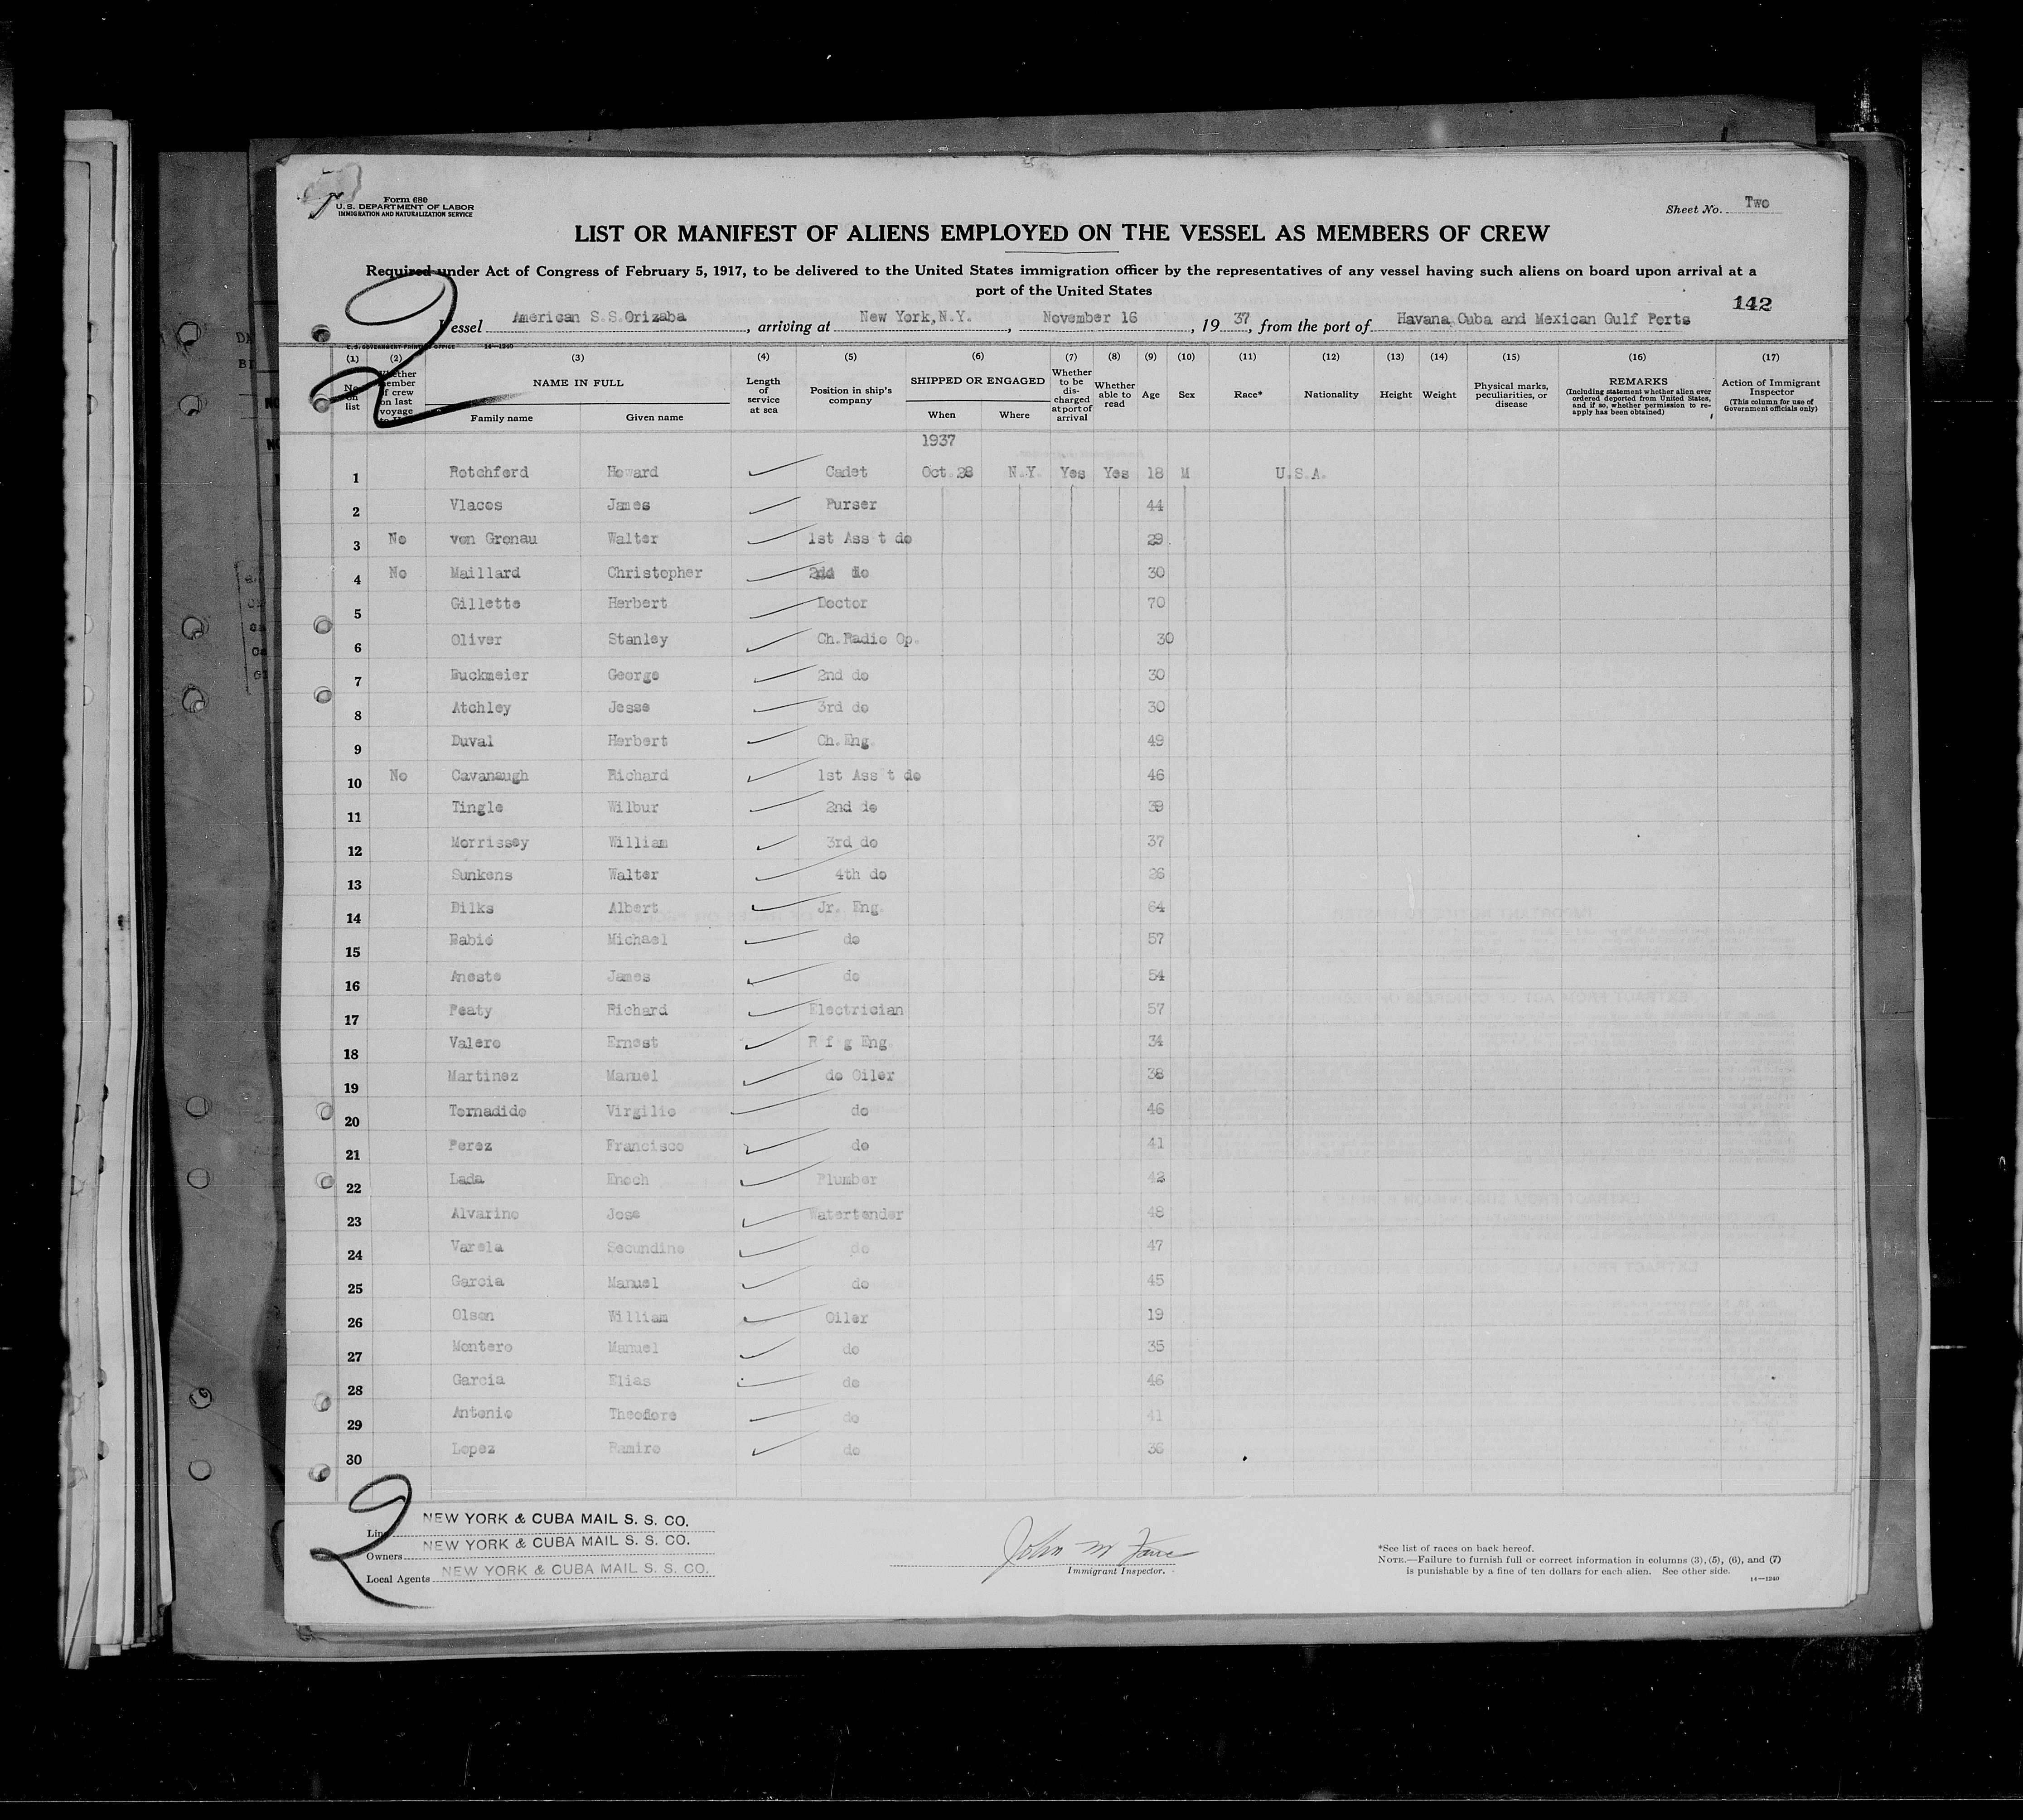 Form 680
U. S. DEPARTMENT OF LABOR
IMMIGRATION AND NATURALIZATION SERVICE
Sheet No. Two
LIST OR MANIFEST OF ALIENS EMPLOYED ON THE VESSEL AS MEMBERS OF CREW
Required under Act of Congress of February 5, 1917, to be delivered to the United States immigration officer by the representatives of any vessel having such aliens on board upon arrival at a
port of the United States
142
2
Vessel American S.S.Orizaba, arriving at New York,N.Y., November 16, 19 37, from the port of Havana Cuba and Mexican Gulf Ports
U. S. GOVERNMENT PRINTING OFFICE 14—1240
(1) (2) (3) (4) (5) (6) (7) (8) (9) (10) (11) (12) (13) (14) (15) (16) (17)
No. on list
Whether member of crew on last voyage
NAME IN FULL
Family name
Given name
Length of service at sea
Position in ship's company
SHIPPED OR ENGAGED
When
Where
Whether to be discharged at port of arrival
Whether able to read
Age
Sex
Race*
Nationality
Height
Weight
Physical marks, peculiarities, or disease
REMARKS
(Including statement whether alien ever ordered deported from United States, and if so, whether permission to reapply has been obtained)
Action of Immigrant Inspector
(This column for use of Government officials only)
1937
1 Rotchford Howard Cadet Oct.28 N.Y. Yes Yes 18 M U.S.A.
2 Vlacos James Purser 44
3 No von Gronau Walter 1st Ass t do 29
4 No Maillard Christopher 2dd do 30
5 Gillette Herbert Doctor 70
6 Oliver Stanley Ch.Radio Op. 30
7 Buckmeier George 2nd do 30
8 Atchley Jesse 3rd do 30
9 Duval Herbert Ch.Eng. 49
10 No Cavanaugh Richard 1st Ass t do 46
11 Tingle Wilbur 2nd do 39
12 Morrissey William 3rd do 37
13 Sunkens Walter 4th do 26
14 Dilks Albert Jr. Eng. 64
15 Babic Michael do 57
16 Aneste James do 54
17 Peaty Richard Electrician 57
18 Valero Ernest R f g Eng. 34
19 Martinez Manuel do Oiler 38
20 Tornadido Virgilio do 46
21 Perez Francisco do 41
22 Lada Enoch Plumber 42
23 Alvarino Jose Watertender 48
24 Varela Secundino do 47
25 Garcia Manuel do 45
26 Olsen William Oiler 19
27 Montero Manuel do 35
28 Garcia Elias do 46
29 Antonio Theodore do 41
30 Lopez Ramiro do 36
2
Line NEW YORK & CUBA MAIL S. S. CO.
Owners NEW YORK & CUBA MAIL S. S. CO.
Local Agents NEW YORK & CUBA MAIL S. S. CO.
John M
Immigrant Inspector.
*See list of races on back hereof.
NOTE.—Failure to furnish full or correct information in columns (3), (5), (6), and (7)
is punishable by a fine of ten dollars for each alien. See other side.
14—1240